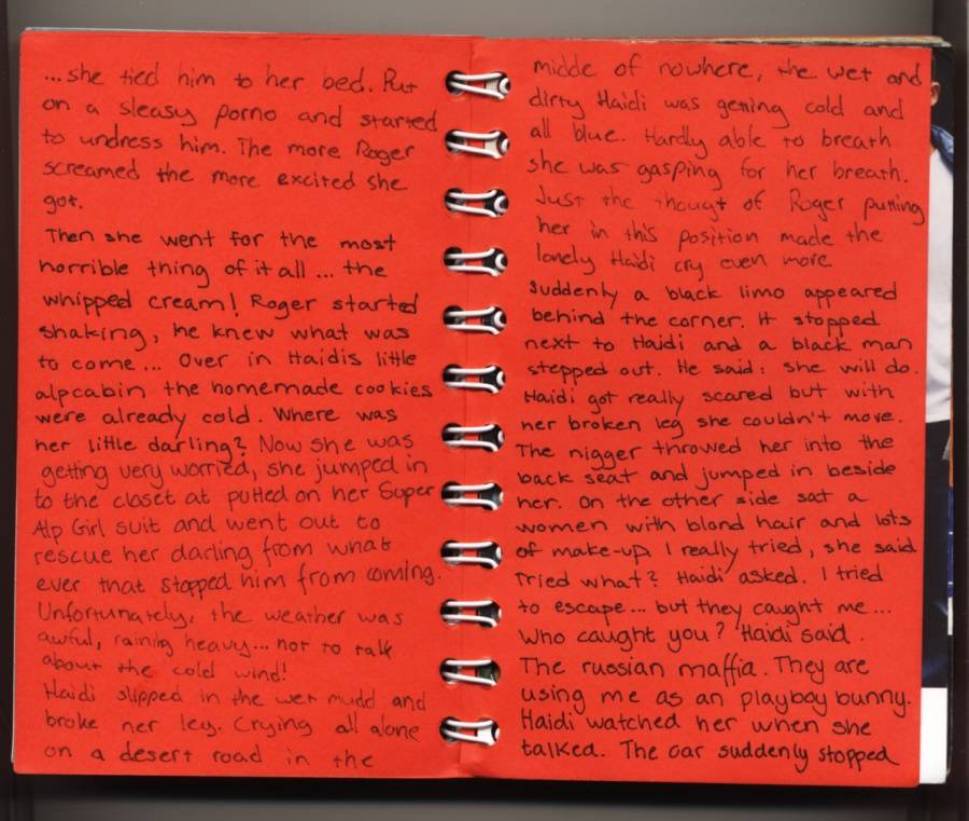 ...she tied him to her bed. Put
on a sleasy porno and started
to undress him. The more Roger
screamed the more excited she
got.
Then she went for the most
horrible thing of it all ... the
whipped cream! Roger started
shaking, he knew what was
to come... Over in Haidis little
alpcabin the homemade cookies
were already cold. Where was
her little darling? Now she was
getting very worried, she jumped in
to the closet at putted on her Super
Alp Girl suit and went out to
rescue her darling from what
ever that stopped him from coming.
Unfortunately, the weather was
awful, raining heavy... not to talk
about the cold wind!
Haidi slipped in the wet mudd and
broke her leg. Crying all alone
on a desert road in the
midde of nowhere, the wet and
dirty Haidi was gening cold and
all blue. Hardly able to breath
she was gasping for her breath.
Just the thougt of Roger putting
her in this position made the
lonely Haidi cry even more
Suddenly a black limo appeared
behind the corner. It stopped
next to Haidi and a black man
stepped out. He said: she will do.
Haidi got really scared but with
her broken leg she couldn't move.
The nigger throwed her into the
back seat and jumped in beside
her. On the other side sat a
women with blond hair and lots
of make-up. I really tried, she said
Tried what? Haidi asked. I tried
to escape... but they caught me...
Who caught you? Haidi said.
The russian maffia. They are
using me as an playboy bunny.
Haidi watched her when she
talked. The car suddenly stopped